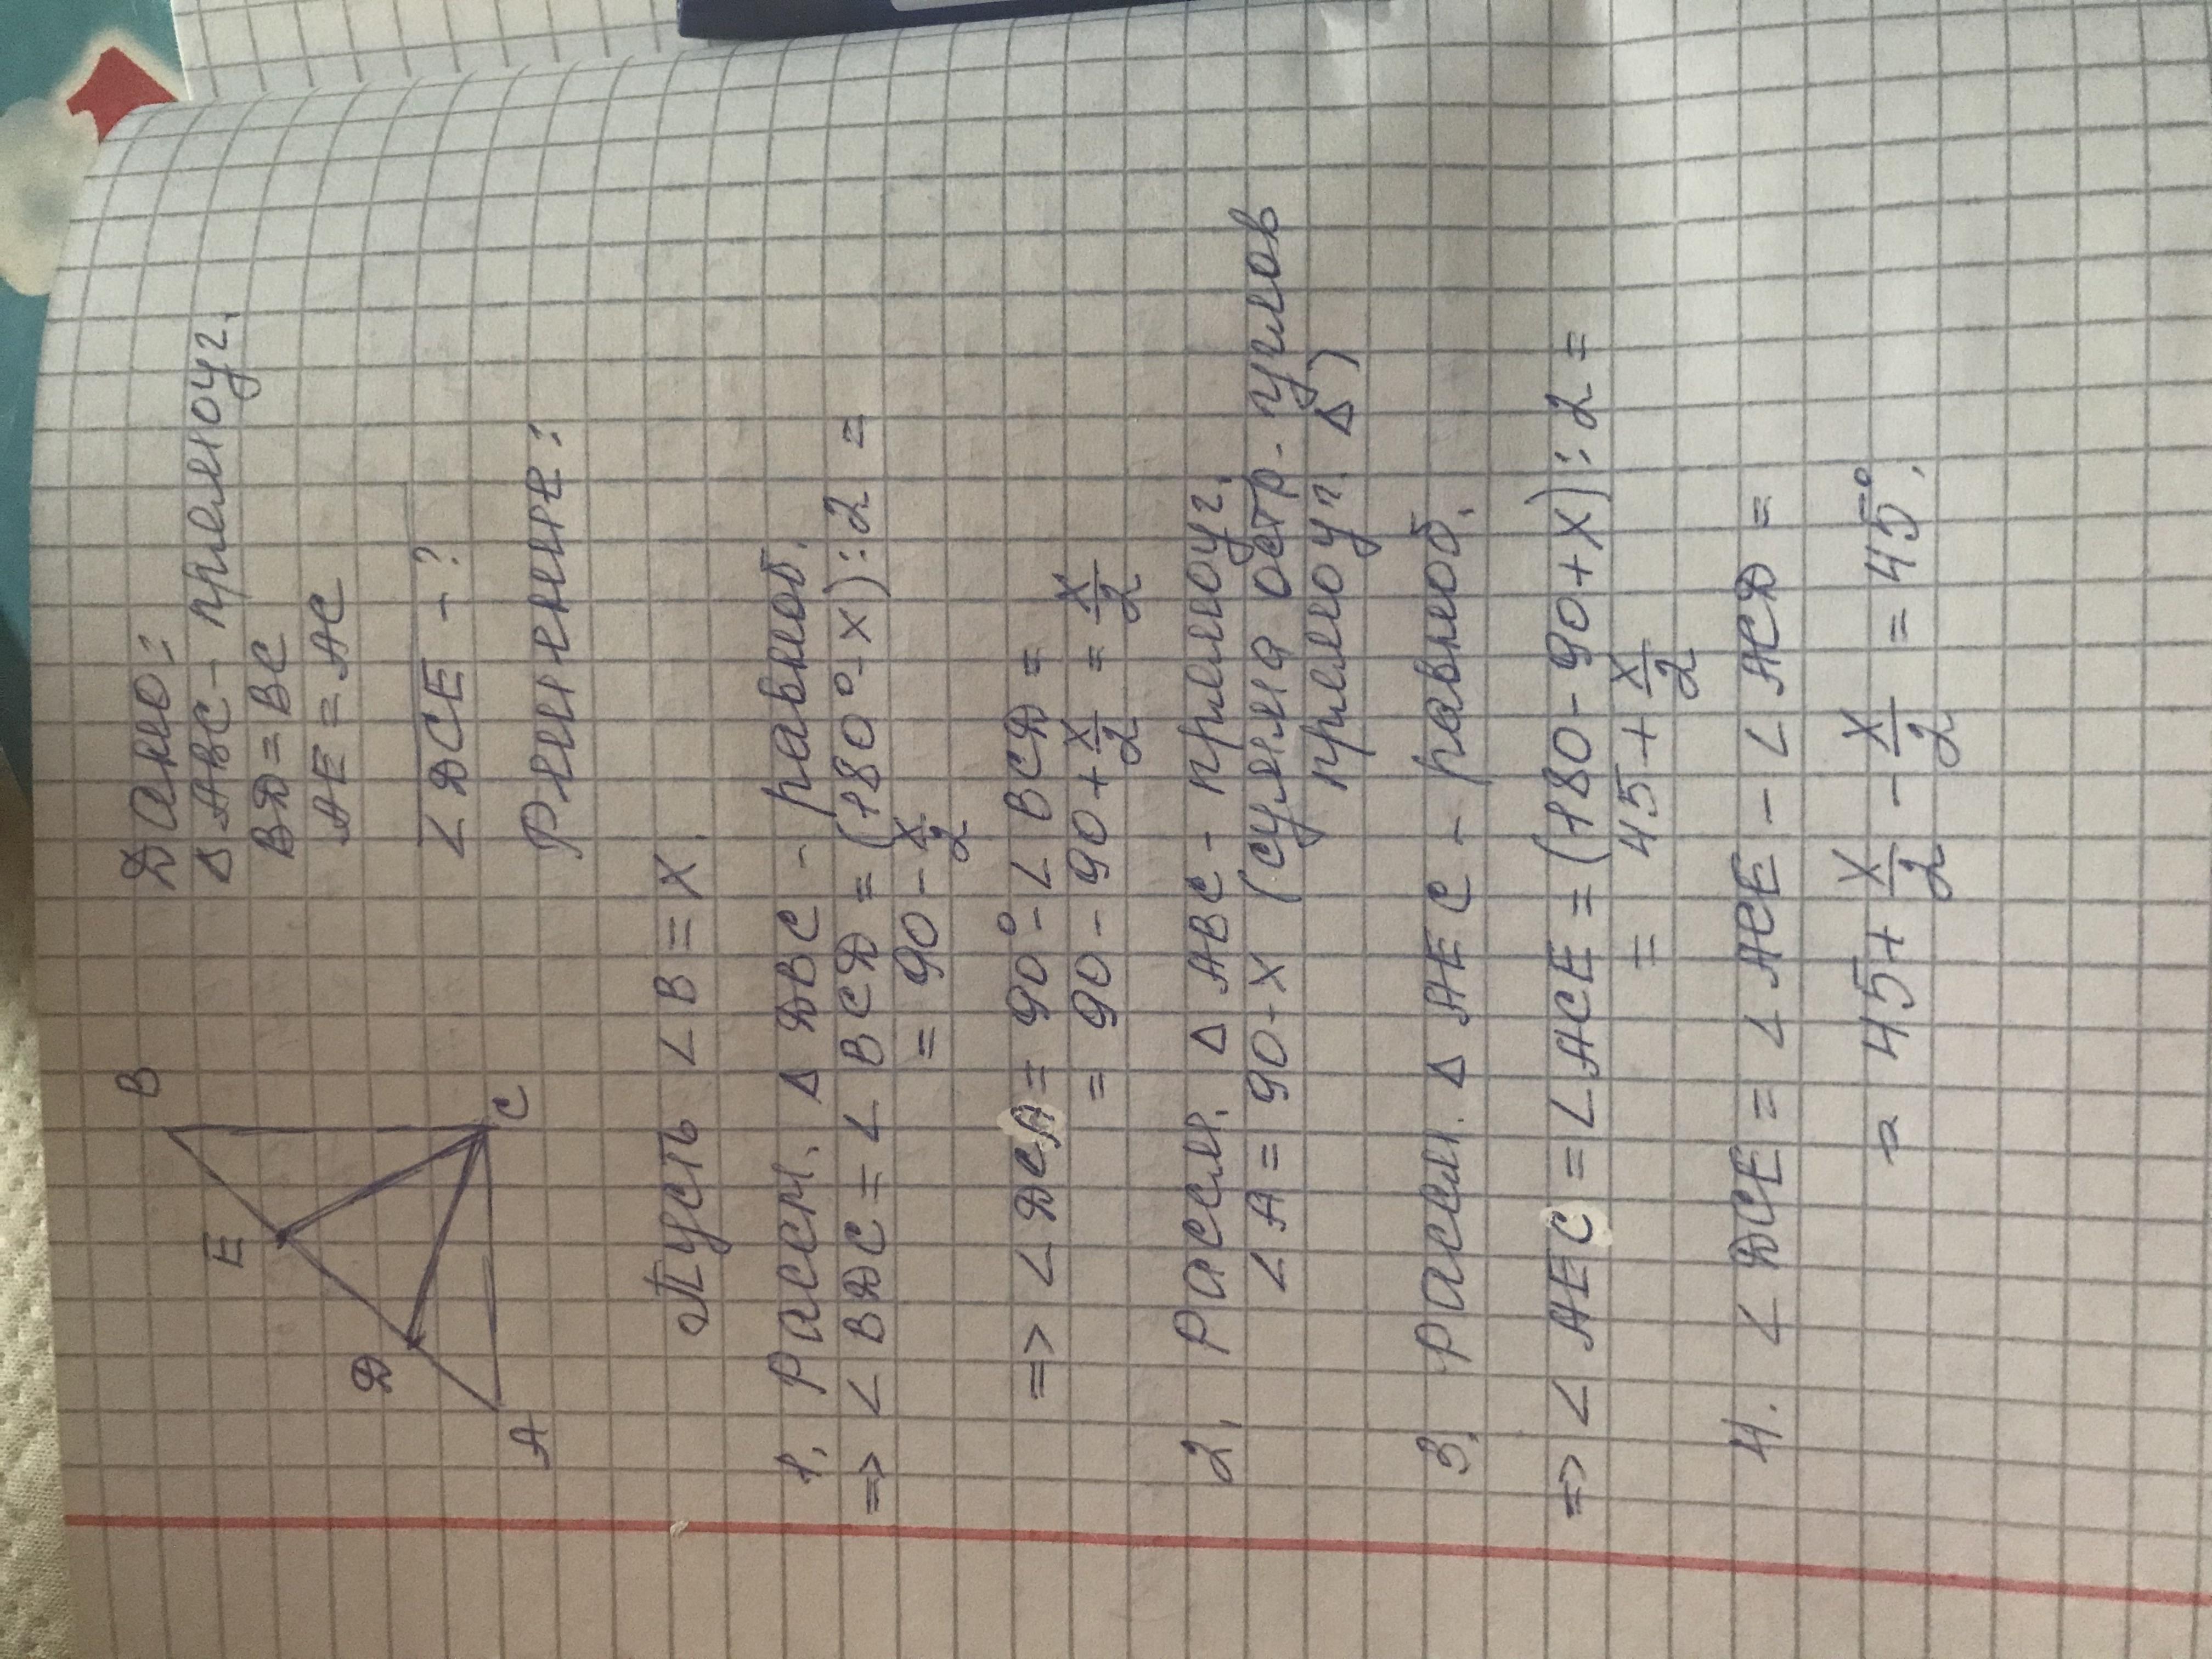 B
E
Д
A
C
Дано:
Δ ABC - прямоуг.
BД = BC
AE = AC
∠ ДCE - ?
Решение:
Пусть ∠ B = x.
1. Рассм. Δ ДBC - равноб.
=> ∠ BДC = ∠ BCД = (180° - x) : 2 =
= 90 - x/2
=> ∠ ДCA = 90° - ∠ BCД =
= 90 - 90 + x/2 = x/2
2. Рассм. Δ ABC - прямоуг.
∠ A = 90 - x (сумма остр. углов
прямоуг. Δ)
3. Рассм. Δ AEC - равноб.
=> ∠ AEC = ∠ ACE = (180 - 90 + x) : 2 =
= 45 + x/2
4. ∠ ДCE = ∠ ACE - ∠ ACД =
= 45 + x/2 - x/2 = 45°.